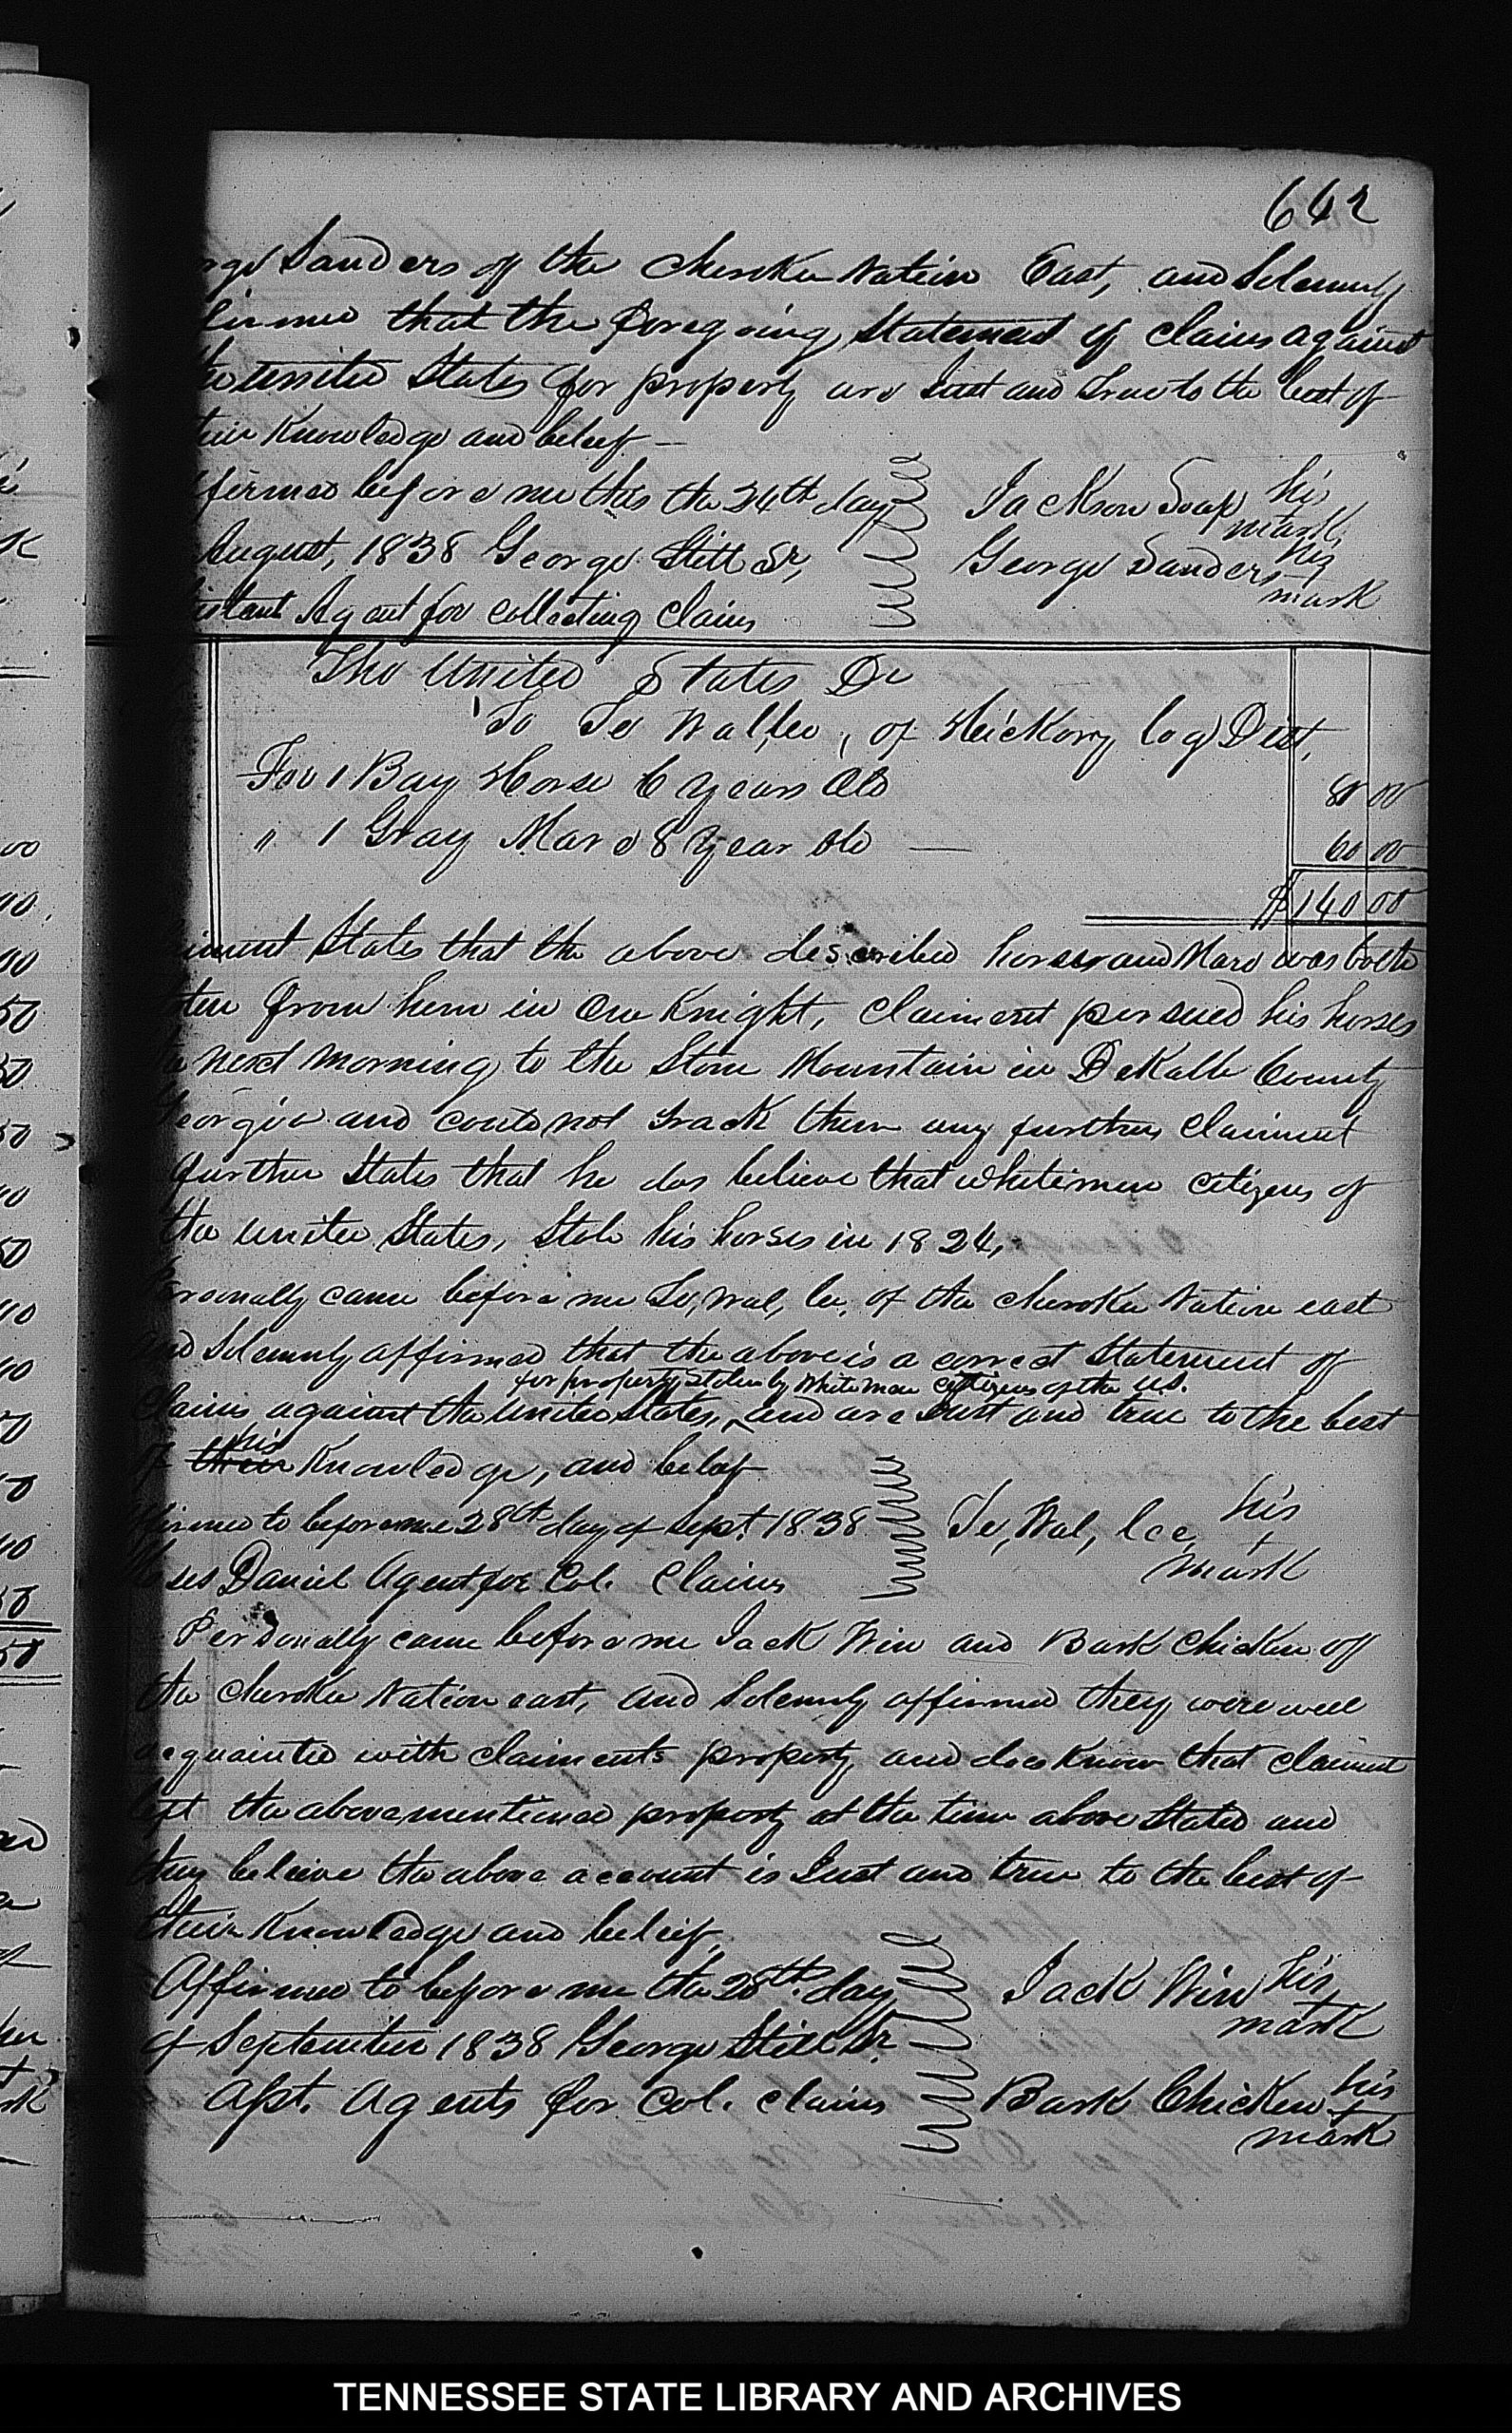 642
rge Sanders of the Cherokee Nation East, and Solemnly
firmed that the foregoing Statement of claims against
the United States for property are Just and True to the best of
their Knowledge and beleef —
ffirmed before me this the 24th day
August, 1838 George Still Sr,
istant Agent for Collecting Claims
Jackson Soap his
mark
George Sanders his
mark
The United States Dr
To Te Wallee, of Heickory log Dist,
For 1 Bay Horse 6 years Old 80 00
" 1 Gray Mare 8 year old — 60 00
$ 140 00
aiment States that the above described horses and Mare was both
olen from him in One Knight, Claiment persued his horses
the next morning to the Stone Mountain in DeKalb County
Georgia and could not track them any further Claiment
further States that he dos believe that whitemen citizens of
the United States, Stole his horses in 1824,
Personally came before me Te, Wal, lee, of the Cherokee Nation east
and Solemnly affirmed that the above is a correct Statement of
for property Stolen by White men citizens of the U.S.
Claims against the United States, ^ and are Just and true to the best
his
of their Knowledge, and belief
ffirmed to before me 28th day of Sept. 1838
Te, Wal, lee, his
mark
Moses Daniel Agent for Col. Claims
Personally came before me Jack Win and Bark Chicken of
the Cherokee Nation east, and Solemnly affirmed they were well
acquainted with claiments property and does Know that claiment
lost the above mentioned property at the time above Stated and
they beleive the above account is Just and true to the best of
their Knowledge and beleif,
Affirmed to before me the 28th day
of September 1838 George Still Sr.
Asst. Agents for Col. Claims
Jack Win his
mark
Bark Chicken his
mark
TENNESSEE STATE LIBRARY AND ARCHIVES